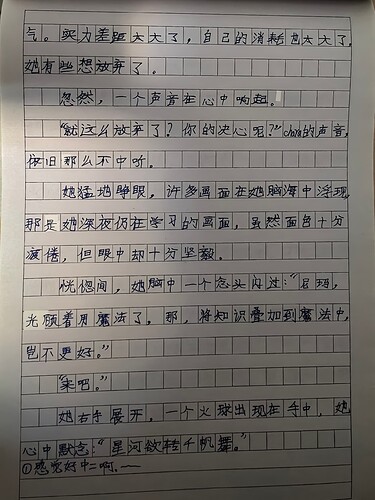 气。实力差距太大了，自己的消耗也太大了，
她有些想放弃了。
忽然，一个声音在心中响起。
“就这么放弃了？你的决心呢？”的声音，
依旧那么不中听。
她猛地睁眼，许多画面在她脑海中浮现，
那是她深夜仍在学习的画面，虽然面色十分
疲倦，但眼中却十分坚毅。
恍惚间，她脑中一个念头闪过：“
光顾着用魔法了。那，将知识叠加到魔法中，
岂不更好。”
“来吧。”
她右手展开。一个火球出现在手中，她
心中默念：“星河欲转千帆舞。”
①感觉好中二啊。~~